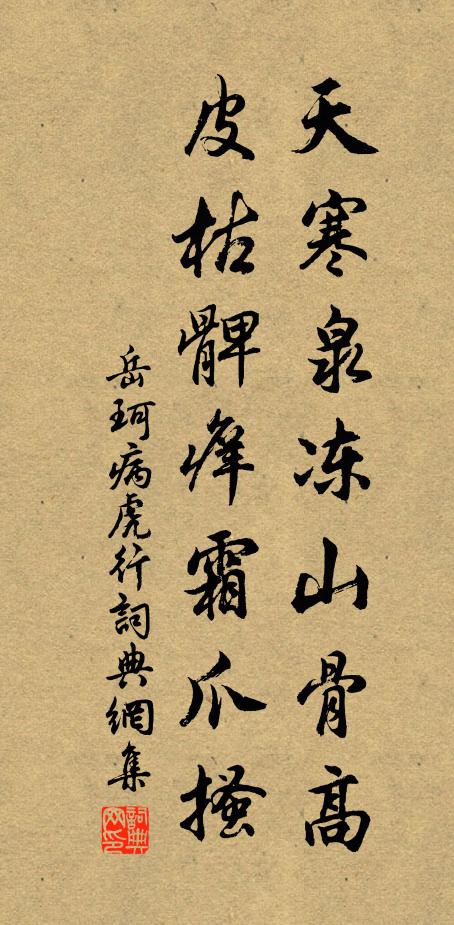 天寒泉冻山骨高
皮枯髀痒霜爪搔
岳珂病虎行詞典網集
詞典网印